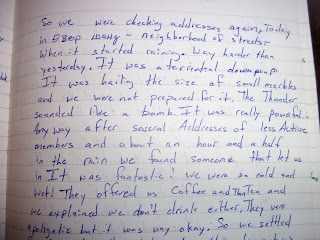 So we were checking addresses again, Today
in – neighborhood of streets –
When it started raining. Way harder than
yesterday. It was a torrential downpour
It was hailing the size of small marbles
and we were not prepared for it. The Thunder
sounded like a bomb. It was really powerful.
Any way after several Addresses of less Active
members and about an hour and a half
in the rain we found someone that let us
in It was fantastic! We were so cold and
wet! They offered us Coffee and Tea and
we explained we don't drink either, They were
apologetic but it was way okay. So we settled